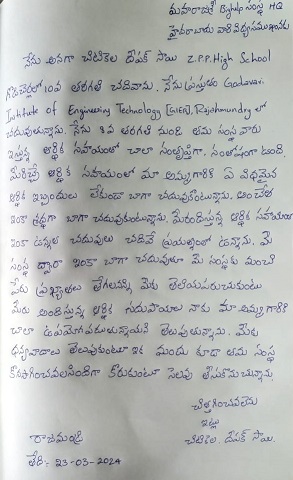 మహారాజశ్రీ Byhelp సంస్థ HQ
హైదరాబాదు వారి దివ్యసముఖమునకు
నేను అనగా చిటికెల దీపక్ సాయి Z.P.P. High School
లో 10వ తరగతి చదివాను. నేను ప్రస్తుతం Godavari
Institute of Engineering Technology (GIET), Rajahmundry లో
చదువుతున్నాను. నేను 8వ తరగతి నుండి తమ సంస్థ వారు
ఇస్తున్న ఆర్థిక సహాయంతో చాలా సంతృప్తిగా, సంతోషంగా ఉంది.
మీరిచ్చే ఆర్థిక సహాయంలో మా అమ్మగారికి ఏ విధమైన
ఆర్థిక ఇబ్బందులు లేకుండా బాగా చదువుకొంటున్నాను. అంచేత
ఇంకా శ్రద్ధగా బాగా చదువుకుంటున్నాను. మీరందిస్తున్న ఆర్థిక సహాయంతో
ఇంకా ఉన్నత చదువులు చదివే ప్రయత్నంలో ఉన్నాను. మీ
సంస్థ ద్వారా ఇంకా బాగా చదువుకొని మీ సంస్థకు మంచి
పేరు ప్రఖ్యాతలు తేగలనని మీకు తెలియపరుచుకుంటు
మీరు అందిస్తున్న ఆర్థిక సదుపాయాలు నాకు మా అమ్మగారికి
చాలా ఉపయోగపడుతున్నాయని తెలుపుతున్నాను. మీకు
ధన్యవాదాలు తెలుపుకుంటూ ఇక ముందు కూడా తమ సంస్థ
కొనసాగించవలసిందిగా కోరుకుంటూ సెలవు తీసుకొనుచున్నాను.
చిత్తగించవలెను
ఇట్లు
చిటికెల. దీపక్ సాయి.
రాజమండ్రి
తేది:- 23-03-2024